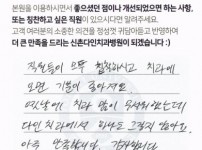 본원을 이용하시면서 좋으셨던 점이나 개선되었으면 하는 사항,
또는 칭찬하고 싶은 직원이 있으시다면 말씀해주세요.
고객 여러분의 소중한 의견을 정성껏 귀담아듣고 반영하여
더 큰 만족을 드리는 신촌다인치과병원이 되겠습니다 :)
직원들이 모두 친절하시고 치과에
오면 기분이 좋아져요
옛날에 치과 많이 무서워했는데
다인 치과에서 하나도 그렇지 않아요.
아주 만족합니다. 감사합니다